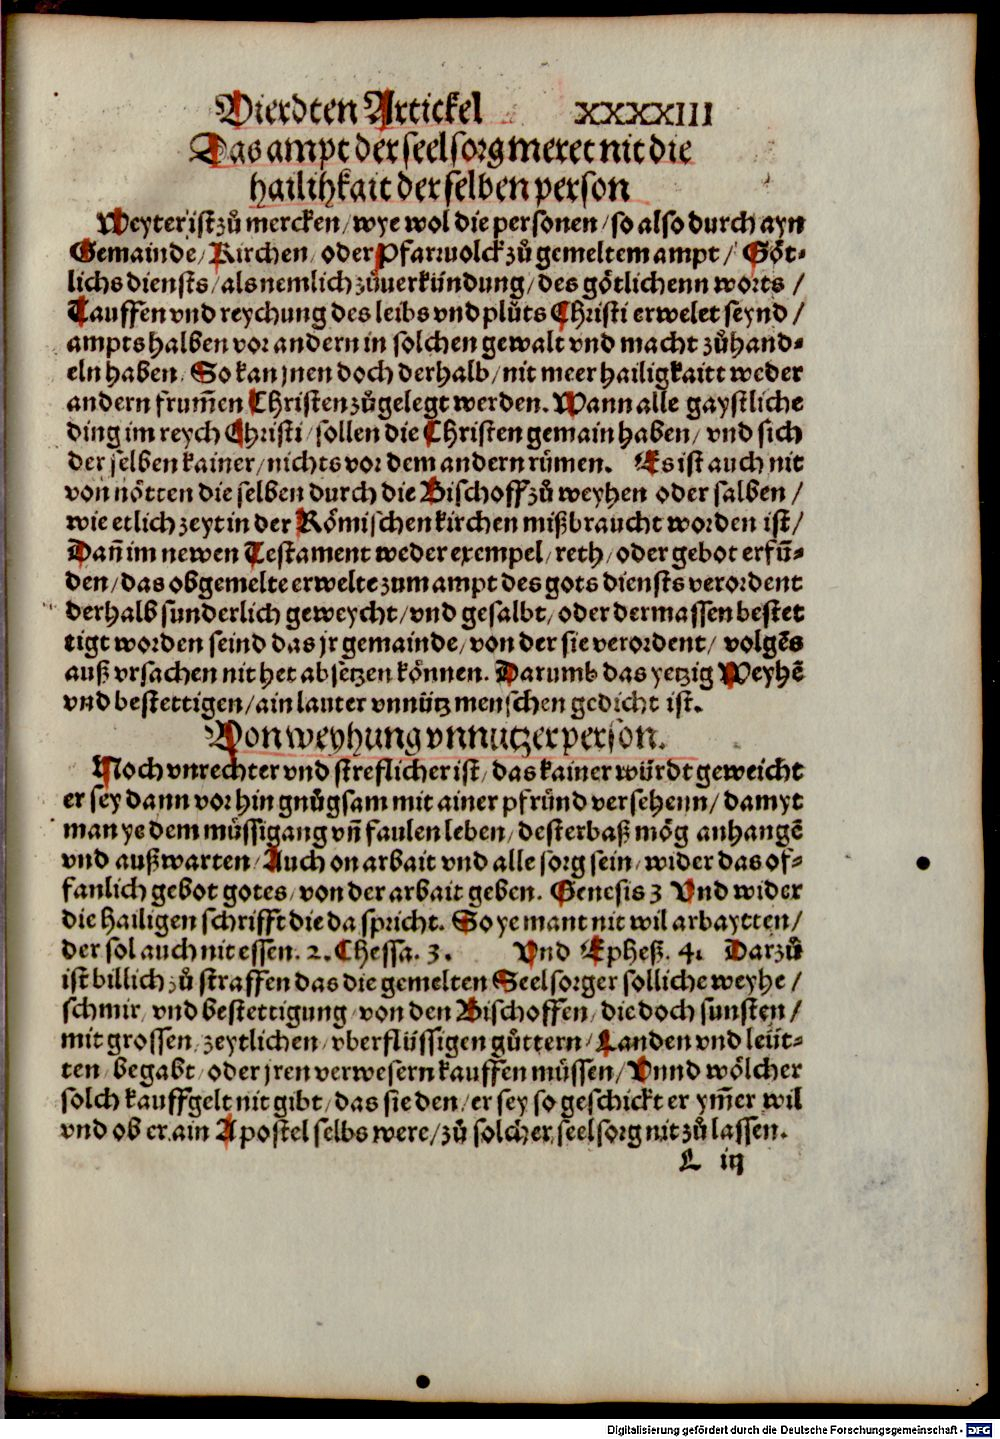 Vierdten Artickel XXXXIII
Das ampt der seelsorg meret nit die
hailihkait der selben person
Weyter ist zů mercken/ wye wol die personen/ so also durch ayn
Gemainde/ Kirchen/ oder Pfarruolck zů gemeltem ampt/ Göt⸗
lichs diensts/ als nemlich zůuerkündung/ des götlichenn worts/
Tauffen vnd reychung des leibs vnd plůts Christi erwelet seynd/
ampts halben vor andern in solchen gewalt vnd macht zůhand⸗
eln haben. So kan jnen doch derhalb/ nit meer hailigkaitt weder
andern frum̃en Christen zůgelegt werden. Wann alle gaystliche
ding im reych Christi/ sollen die Christen gemain haben/ vnd sich
der selben kainer/ nichts vor dem andern rümen. Es ist auch nit
von nötten die selben durch die Bischoff zů weyhen oder salben/
wie etlich zeyt in der Römischen kirchen mißbraucht worden ist/
Dan̄ im newen Testament weder exempel/ reth/ oder gebot erfũ⸗
den/ das obgemelte erwelte zum ampt des gots diensts verordent
derhalb sunderlich geweycht/ vnd gesalbt/ oder dermassen bestet
tigt worden seind das jr gemainde/ von der sie verordent/ volgẽs
auß vrsachen nit het absetzen können. Darumb das yetzig Weyhẽ
vnd bestettigen/ ain lauter vnnütz menschen gedicht ist.
Von weyhung vnnutzer person.
Noch vnrechter vnd streflicher ist/ das kainer würdt geweicht
er sey dann vorhin gnůgsam mit ainer pfründ versehenn/ damyt
man ye dem müssigang vn̄ faulen leben/ desterbaß mög anhangẽ
vnd außwarten/ Auch on arbait vnd alle sorg sein/ wider das of⸗
fanlich gebot gotes/ von der arbait geben. Genesis 3 Vnd wider
die hailigen schrifft die da spricht. So yemant nit wil arbaytten/
der sol auch nit essen. 2. Thessa. 3. Vnd Epheß. 4. Darzů
ist billich zů straffen das die gemelten Seelsorger solliche weyhe/
schmir/ vnd bestettigung/ von den Bischoffen/ die doch sunsten/
mit grossen/ zeytlichen/ vberflüssigen güttern/ Landen vnd leüt⸗
ten/ begabt/ oder jren verwesern kauffen müssen/ Vnnd wölcher
solch kauffgelt nit gibt/ das sie den/ er sey so geschickt er ym̃er wil
vnd ob er ain Apostel selbs were/ zů solcher seelsorg nit zů lassen.
L iij
Digitalisierung gefördert durch die Deutsche Forschungsgemeinschaft - DFG